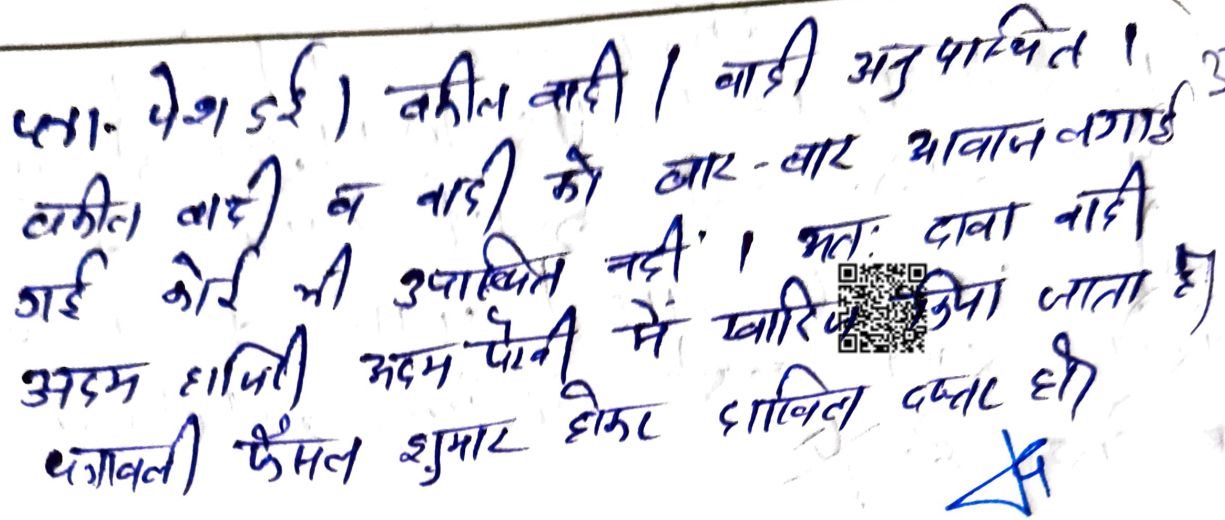 पत्रा. पेश हुई। वकील वादी। वादी अनुपस्थित।
वकील वादी व वादी को बार-बार आवाज लगाई
गई कोई भी उपस्थित नहीं। अतः दावा वादी
अदम हाजिरी अदम पैरवी में खारिज किया जाता है।
पत्रावली फैसल शुमार होकर दाखिल दफ्तर हो।